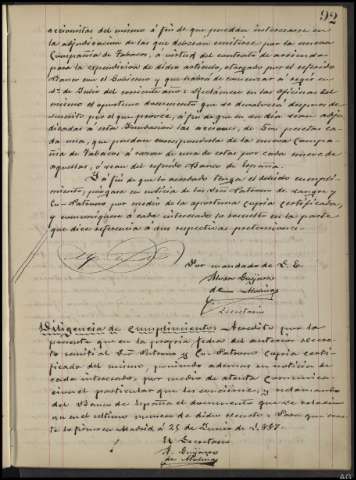 92
accionistas del mismo á fin de que puedan interesarse en
la adjudicacion de las que debieran emitirse por la nueva
Compañía de Tabacos, á virtud del contrato de arriendo
para la expendicion de dicho artículo, otorgado por el referido
Banco con el Gobierno y que habrá de comenzar á regir en
1º de Julio del corriente año: Reclámese en las oficinas del
mismo el oportuno documento que se devolverá despues de
suscrito por el que provee, á fin de que en su dia sean adju-
dicadas á esta Fundacion las acciones, de 500 pesetas ca-
da una, que puedan corresponderla de la nueva Compa-
ñia de Tabacos, á razon de una de estas por cada nueve de
aquellas, ó sean del referido Banco de España.
Y á fin de que lo acordado tenga el debido cumpli-
miento, póngase en noticia de los Sres Patrono de sangre y
Co-Patrono por medio de la oportuna copia certificada,
y comuníquese á cada interesado lo resuelto en la parte
que dice referencia á sus respectivas pretensiones.
Por mandado de S. E.
de Molina
Secretario
Diligencia de cumplimiento: Acredito por la
presente que en la propia fecha del anterior decre-
to remití al Sr Patrono y Co-Patrono copia certi-
ficada del mismo, poniendo ademas en noticia de
cada interesado, por medio de atenta comunica-
cion el particular que les concierne; y reclamando
del Banco de España el documento que se relacio-
na en el ultimo numero de dicho decreto. Para que cons-
te lo firmo en Madrid á 25 de Junio de 1887.
El Secretario
de Molina